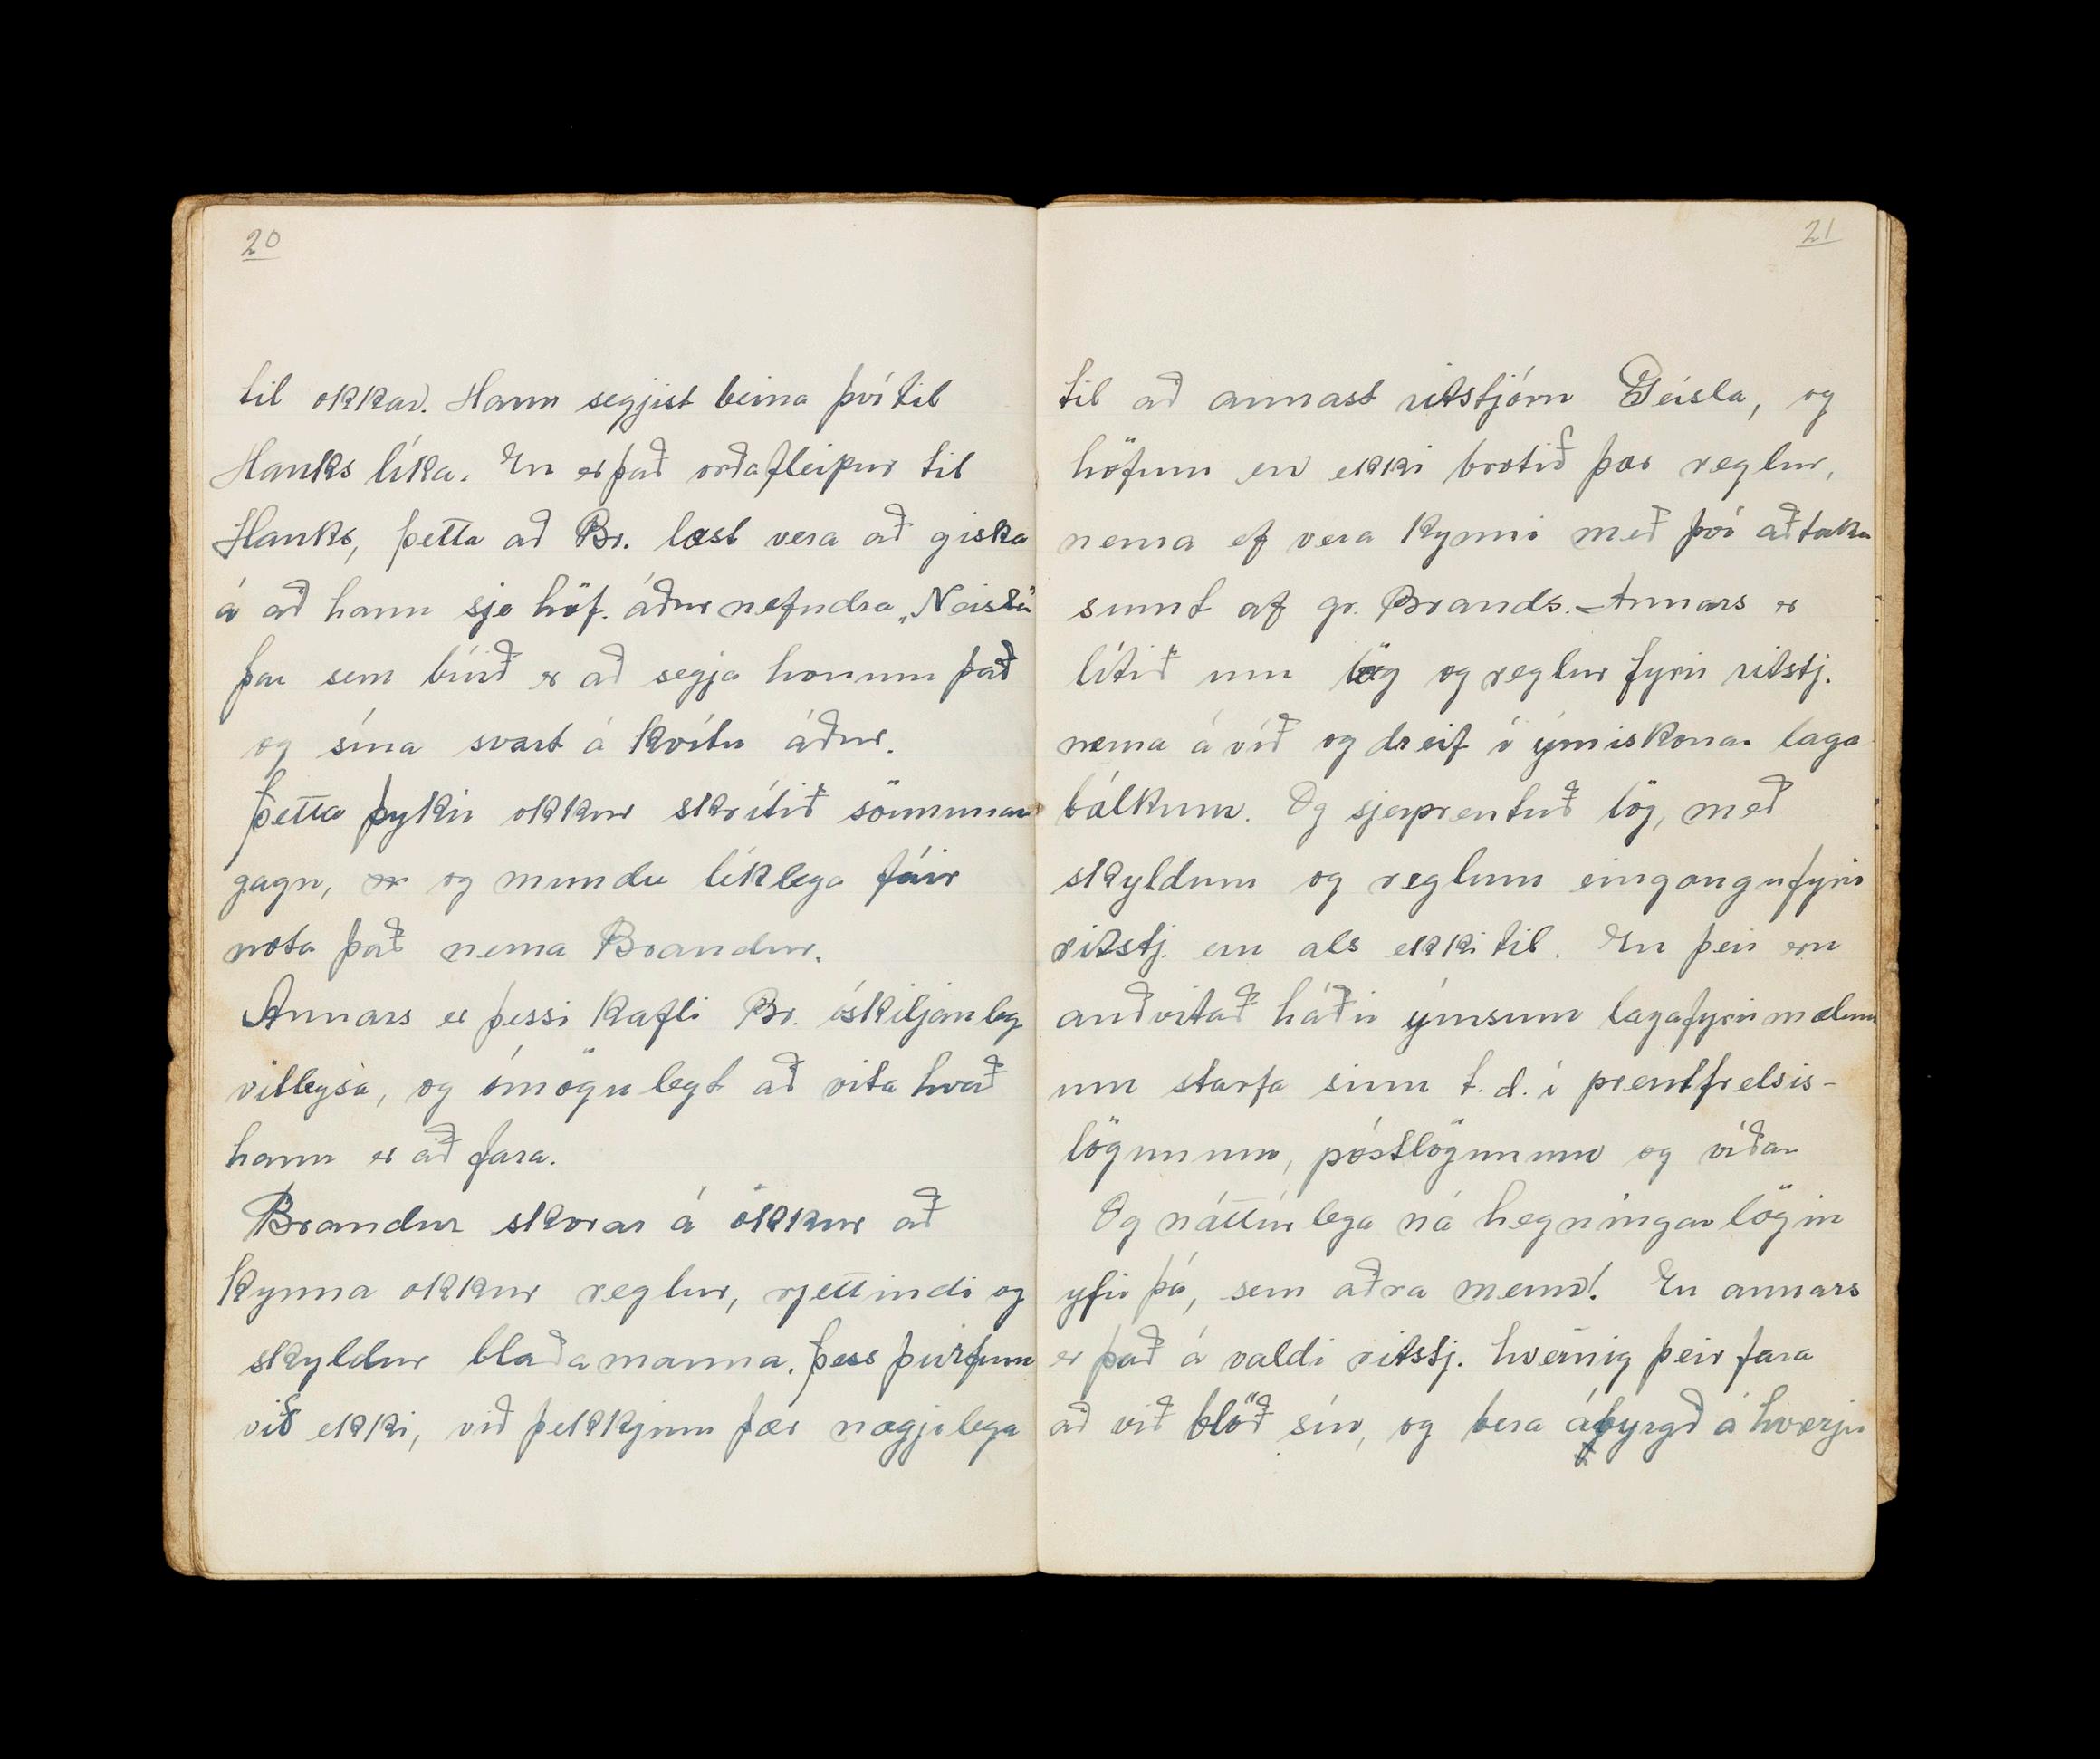 20
til okkar. Hann segjist beina því til
Hauks líka. En er það orðafleipur til
Hauks, þetta að Br. læst vera að giska
á að hann sje höf. áður nefndra „Neista"
þar sem búið er að segja honum það
og sína svart á hvítu áður.
Þetta þykir okkur skrítið sönnunar
gagn, og mundu líklega fáir
nota það nema Brandur.
Annars er þessi kafli Br. óskiljanleg
vitleysa, og ómögulegt að vita hvað
hann er að fara.
Brandur skorar á okkur að
kynna okkur reglur, rjettindi og
skyldur blaðamanna. Þess þurfum
við ekki, við þekkjum þær nægjilega
21
til að annast ritstjórn Geisla, og
höfum en ekki brotið þær reglur,
nema ef vera kynni með því að taka
sumt af gr. Brands. - Annars er
lítið um lög og reglur fyrir ritstj.
nema á víð og dreif í ýmiskonar laga
bálkum. Og sjerprentuð lög, með
skyldum og reglum eingöngu fyrir
ritstj. eru als ekki til. En þeir eru
auðvitað háðir ýmsum lagafyrirmælum
um starfa sinn t.d. í prentfrelsis-
lögunum, póstlögunum og víðar
Og náttúrlega ná hegningarlögin
yfir þá, sem aðra menn! En annars
er það á valdi ritstj. hvernig þeir fara
að við blöð sín, og bera ábyrgð á hverju